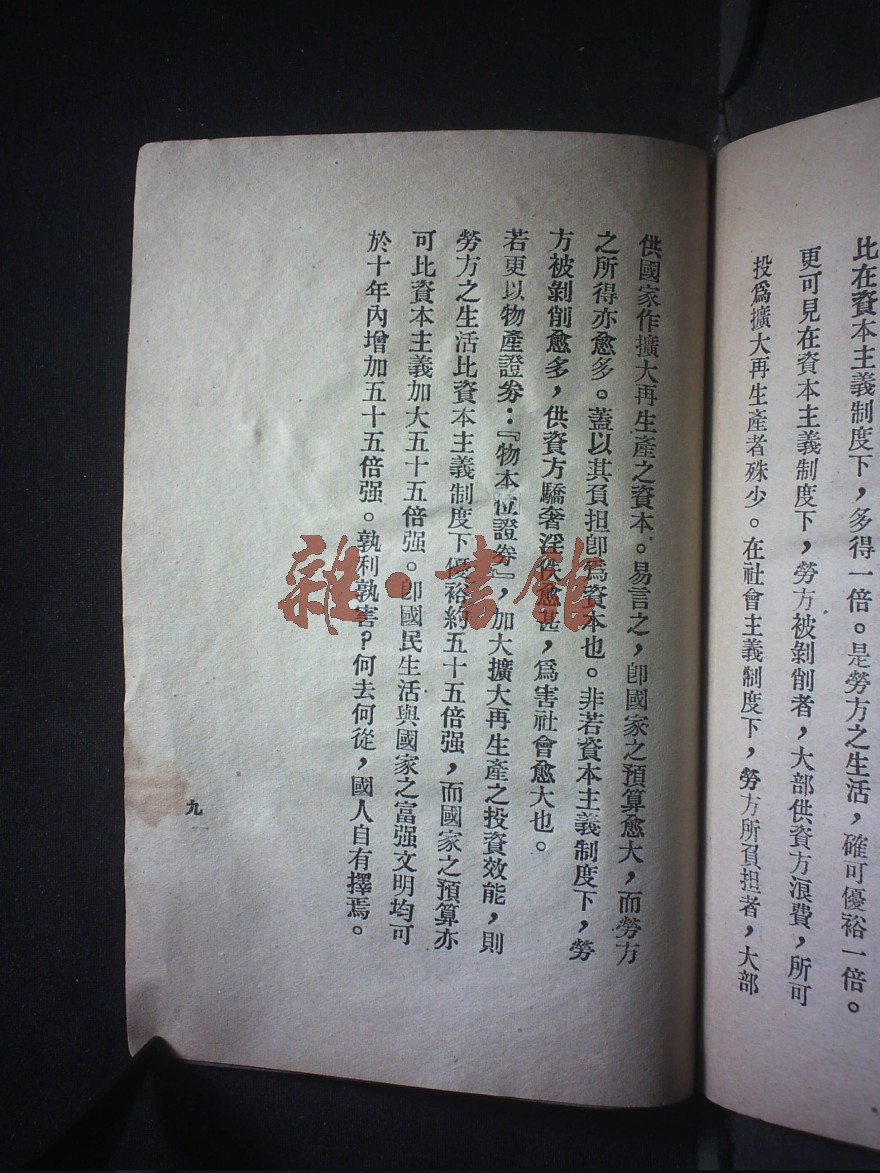 比在資本主義制度下，多得一倍。是勞方之生活，確可優裕一倍。
更可見在資本主義制度下，勞方被剝削者，大部供資方浪費，所可
投爲擴大再生產者殊少。在社會主義制度下，勞方所負担者，大部
供國家作擴大再生產之資本。易言之，卽國家之預算愈大，而勞方
之所得亦愈多。蓋以其負担卽爲資本也。非若資本主義制度下，勞
方被剝削愈多，供資方驕奢淫佚愈甚，爲害社會愈大也。
若更以物產證券：『物本位證券』，加大擴大再生產之投資效能，則
勞方之生活比資本主義制度下優裕約五十五倍强，而國家之預算亦
可比資本主義加大五十五倍强。卽國民生活與國家之富强文明均可
於十年內增加五十五倍强。孰利孰害？何去何從，國人自有擇焉。
九
雜·書館